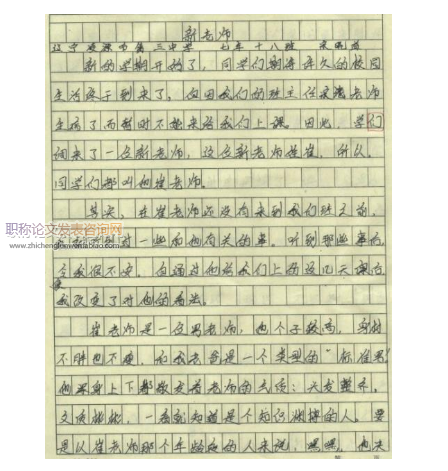 新老师
辽宁 第三中学 七年十八班
新的学期开始了，同学们期待许久的校园
生活终于到来了，但因我们的班主任 老师
生病了而暂时不能来给我们上课。因此，学们
调来了一位新老师，这位新老师姓崔，所以，
同学们都叫他崔老师。
其实，在崔老师还没有来到我们班之前，
一些和他有关的事。听到那些事后，
令我很不安，但通过他给我们上的这几天课后
使
我改变了对他的看法。
崔老师是一位男老师，他个子较高，身材
不胖也不瘦，和我老爸是一个类型的“标准男
他浑身上下都散发着老师的气质：头发整齐，
文质彬彬，一看就知道是个知识渊博的人。要
是以崔老师那个年龄段的人来说，嘿嘿，他决
职称论文发表咨询网
www.zhichenglunwenfabiao.com